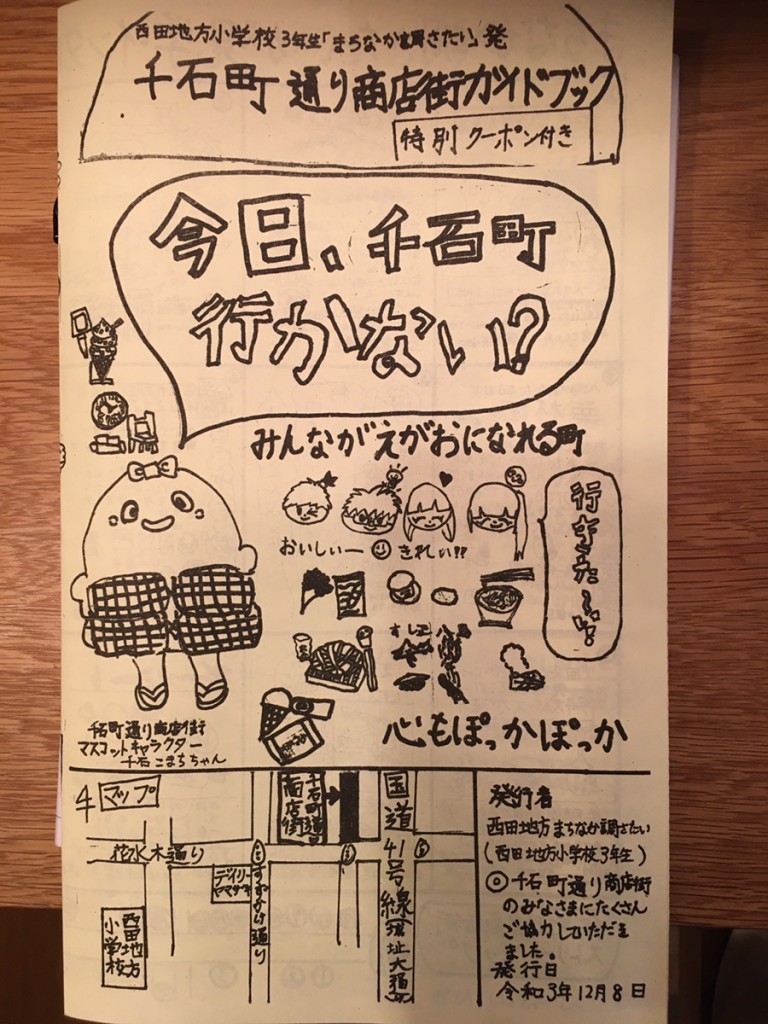 西田地方小学校3年生「まちなか調さたい」発
千石町通り商店街ガイドブック
特別クーポン付き
今日、千石町
行かない!?
みんながえがおになれる町
おいしいー
きれい!!
行きた〜い!
すし玉
心もぽっかぽっか
千石町通り商店街
マスコットキャラクター
千石こまちちゃん
マップ
千石町通り
商店街
国道41号線
花水木通り
デイリー
ヤマザキ
すずかけ通り
西田地方
小学校
発行者
西田地方まちなか調さたい
(西田地方小学校3年生)
◎千石町通り商店街
のみなさまにたくさん
ご協力していただき
ました。
発行日
令和3年12月8日